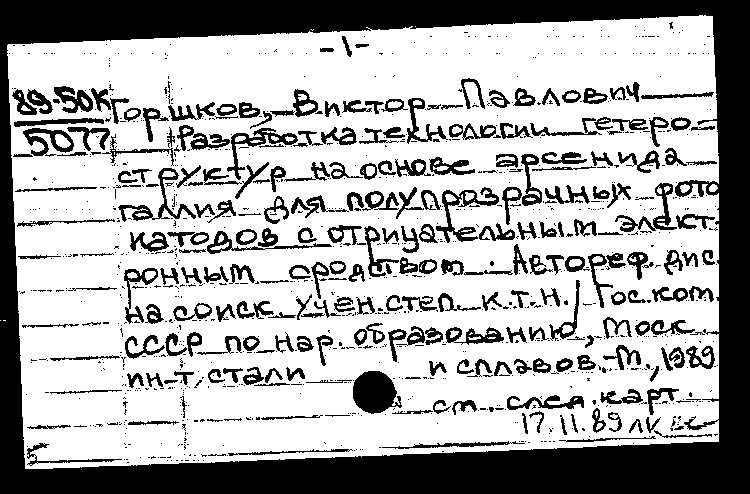 -1-
89-50К Горшков, Виктор Павлович
5077 Разработка технологии гетеро-
структур на основе арсенида
галлия для полупрозрачных фото
катодов с отрицательным элект-
ронным сродством. Автореф. дис.
на соиск. учен. степ. к.т.н./ Гос. ком.
СССР по нар. образованию, Моск.
ин-т, стали и сплавов.-М.,1989
см. след. карт.
17.11.89 лк
5